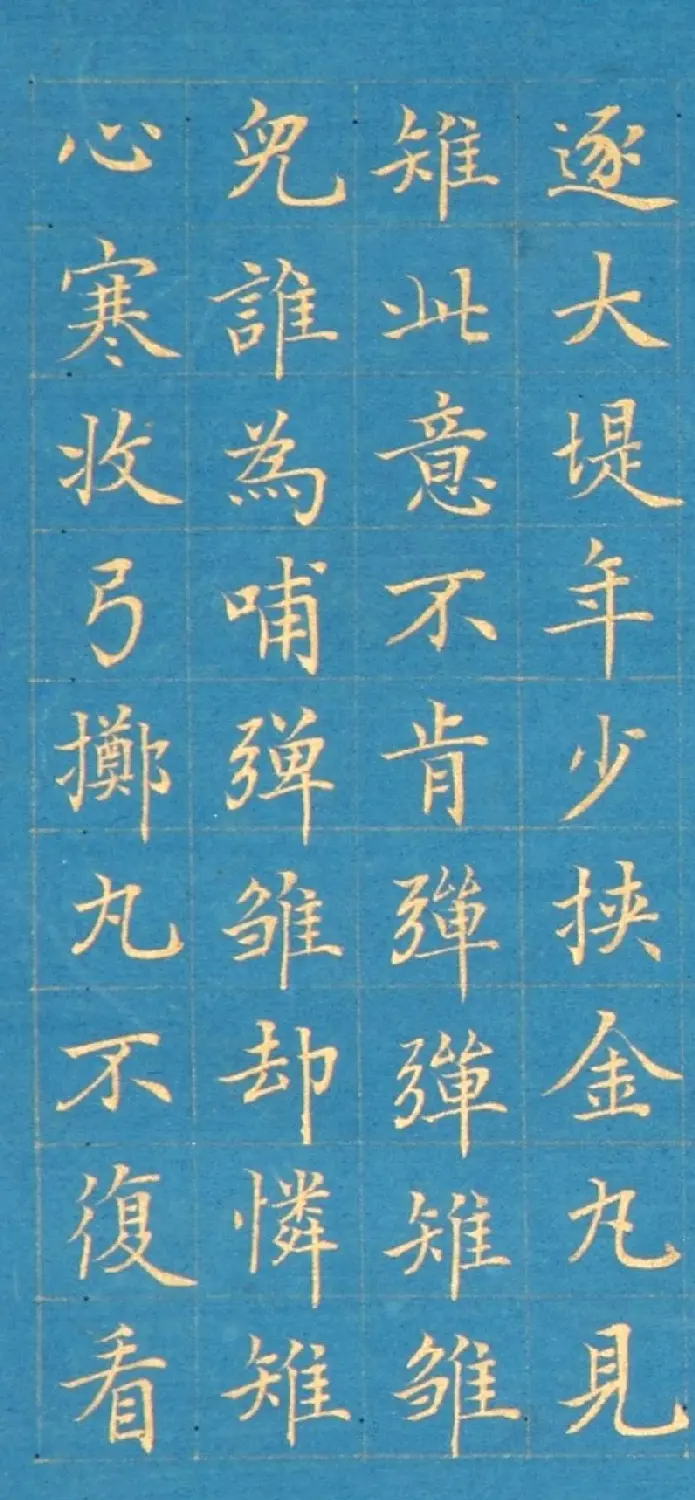 逐大堤年少挟金丸見
雉此意不肯彈彈雉雏
兒誰為哺弹雏却憐雉
心寒收弓擲丸不復看